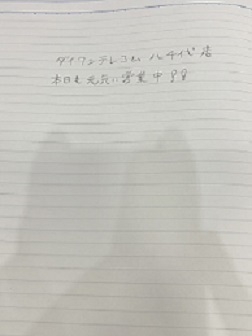 ダイワンテレコム 八千代店
本日も元気に営業中！！